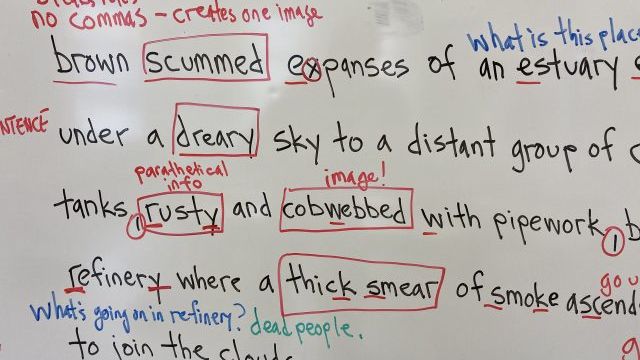 no commas - creates one image
what is this place
brown scummed expanses of an estuary
NTENCE under a dreary sky to a distant group of
parathetical info
image!
tanks, rusty and cobwebbed with pipework,
refinery where a thick smear of smoke ascend
go u
what's going on in refinery? dead people.
to join the clouds